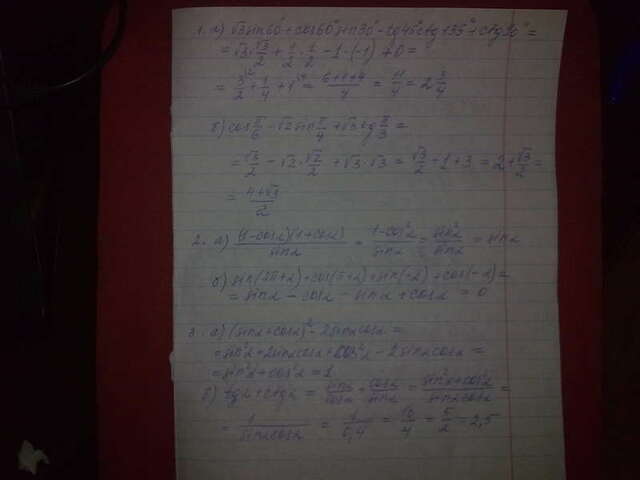 1. а) √3 sin60° + cos60° sin30° - tg45° ctg135° + ctg90° =
= √3·√3/2 + 1/2·1/2 - 1·(-1) + 0 =
= 3/2 + 1/4 + 1 = (6+1+4)/4 = 11/4 = 2 3/4
б) cos π/6 - √2 sin π/4 + √3 tg π/3 =
= √3/2 - √2·√2/2 + √3·√3 = √3/2 - 1 + 3 = 2 + √3/2 =
= (4+√3)/2
2. а) (1-cosα)(1+cosα)/sinα = (1-cos²α)/sinα = sin²α/sinα = sinα
б) sin(2π+α) + cos(π+α) + sin(-α) + cos(-α) =
= sinα - cosα - sinα + cosα = 0
3. а) (sinα+cosα)² - 2sinαcosα =
= sin²α + 2sinαcosα + cos²α - 2sinαcosα =
= sin²α + cos²α = 1
б) tgα + ctgα = sinα/cosα + cosα/sinα = (sin²α+cos²α)/(sinαcosα) =
= 1/(sinαcosα) = 1/0,4 = 10/4 = 5/2 = 2,5